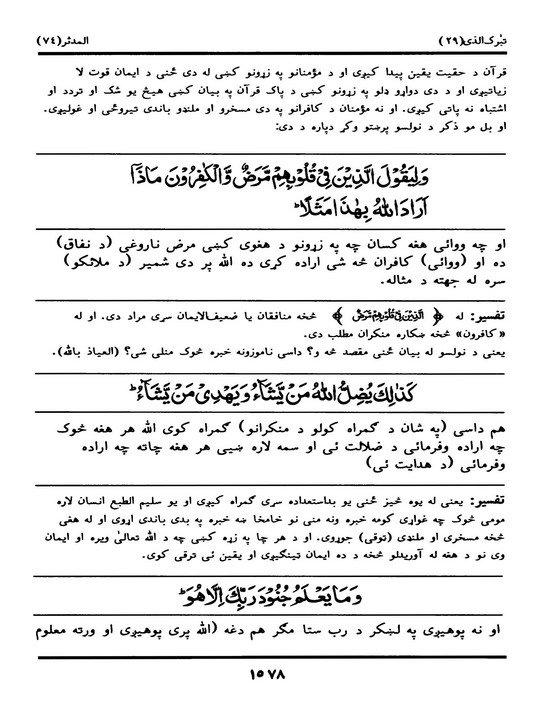 تبٰرک الذی (۲۹) المدثر (۷٤)
قرآن د حقیت یقین پیدا کیږي او د مؤمنانو په زړونو کښې له دې ځنې د ایمان قوت لا
زیاتیږي او د دې دواړو ډلو په زړونو کښې د پاک قرآن په بیان کښې هیڅ یو شک او تردد او
اشتباه نه پاتې کیږي. او نه مؤمنان د کافرانو په دې مسخرو او ملنډو باندې تیروځي او غولیږي.
او بل مو ذکر د نولسو پرښتو وکړ دپاره د دې:
وَلِيَقُولَ الَّذِينَ فِي قُلُوبِهِمْ مَّرَضٌ وَّالْكٰفِرُونَ مَاذَآ
اَرَادَ اللّٰهُ بِهٰذَا مَثَلًا ؕ
او چه ووائي هغه کسان چه په زړونو د هغوی کښې مرض ناروغي (د نفاق)
ده او (ووائي) کافران څه شی اراده کړی ده الله پر دې شمیر (د ملائکو)
سره له جهته د مثاله.
تفسیر: له ﴿ الَّذِينَ فِي قُلُوبِهِمْ مَّرَضٌ ﴾ څخه منافقان یا ضعیف‌الایمان سړي مراد دي. او له
«کافرون» څخه ښکاره منکران مطلب دي.
یعنی د نولسو له بیان ځنې مقصد څه و؟ داسې ناموزونه خبره څوک منلی شي؟ (العیاذ بالله).
كَذٰلِكَ يُضِلُّ اللّٰهُ مَنْ يَّشَآءُ وَيَهْدِيْ مَنْ يَّشَآءُ ؕ
هم داسې (په شان د ګمراه کولو د منکرانو) ګمراه کوي الله هر هغه څوک
چه اراده وفرمائي د ضلالت ئې او سمه لاره ښیي هر هغه چاته چه اراده
وفرمائي (د هدایت ئې)
تفسیر: یعنی له یوه څیز ځنې یو بداستعداده سړی ګمراه کیږي او یو سلیم الطبع انسان لاره
مومي څوک چه غواړي کومه خبره ونه مني نو خامخا ښه خبره په بدی باندې اړوي او له هغې
څخه مسخرې او ملنډې (ټوقې) جوړوي. او د هر چا په زړه کښې چه د الله تعالیٰ ویره او ایمان
وي نو د هغه له آوریدلو څخه د ده ایمان تینګیږي او یقین ئې ترقي کوي.
وَمَا يَعْلَمُ جُنُوْدَ رَبِّكَ اِلَّا هُوَ ؕ
او نه پوهیږي په لښکر د رب ستا مګر هم دغه (الله پرې پوهیږي او ورته معلوم
۱۵۷۸